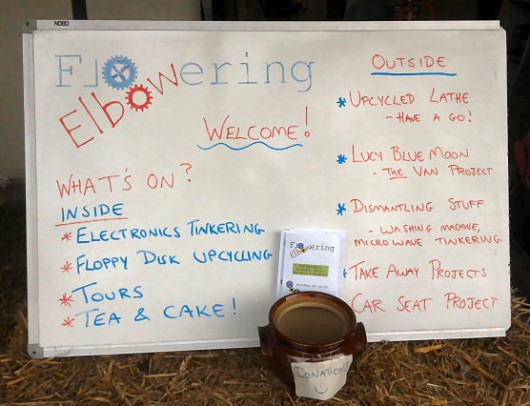 NOBO
Flowering
Elbow
WELCOME!
WHAT'S ON?
INSIDE
* ELECTRONICS TINKERING
* FLOPPY DISK UPCYCLING
* TOURS
* TEA & CAKE!
OUTSIDE
* UPCYCLED LATHE
- HAVE A GO!
* LUCY BLUE MOON
- THE VAN PROJECT
* DISMANTLING STUFF
- WASHING MACHINE,
MICROWAVE TINKERING
* TAKE AWAY PROJECTS
CAR SEAT PROJECT
Flowering
Elbow
DONATION